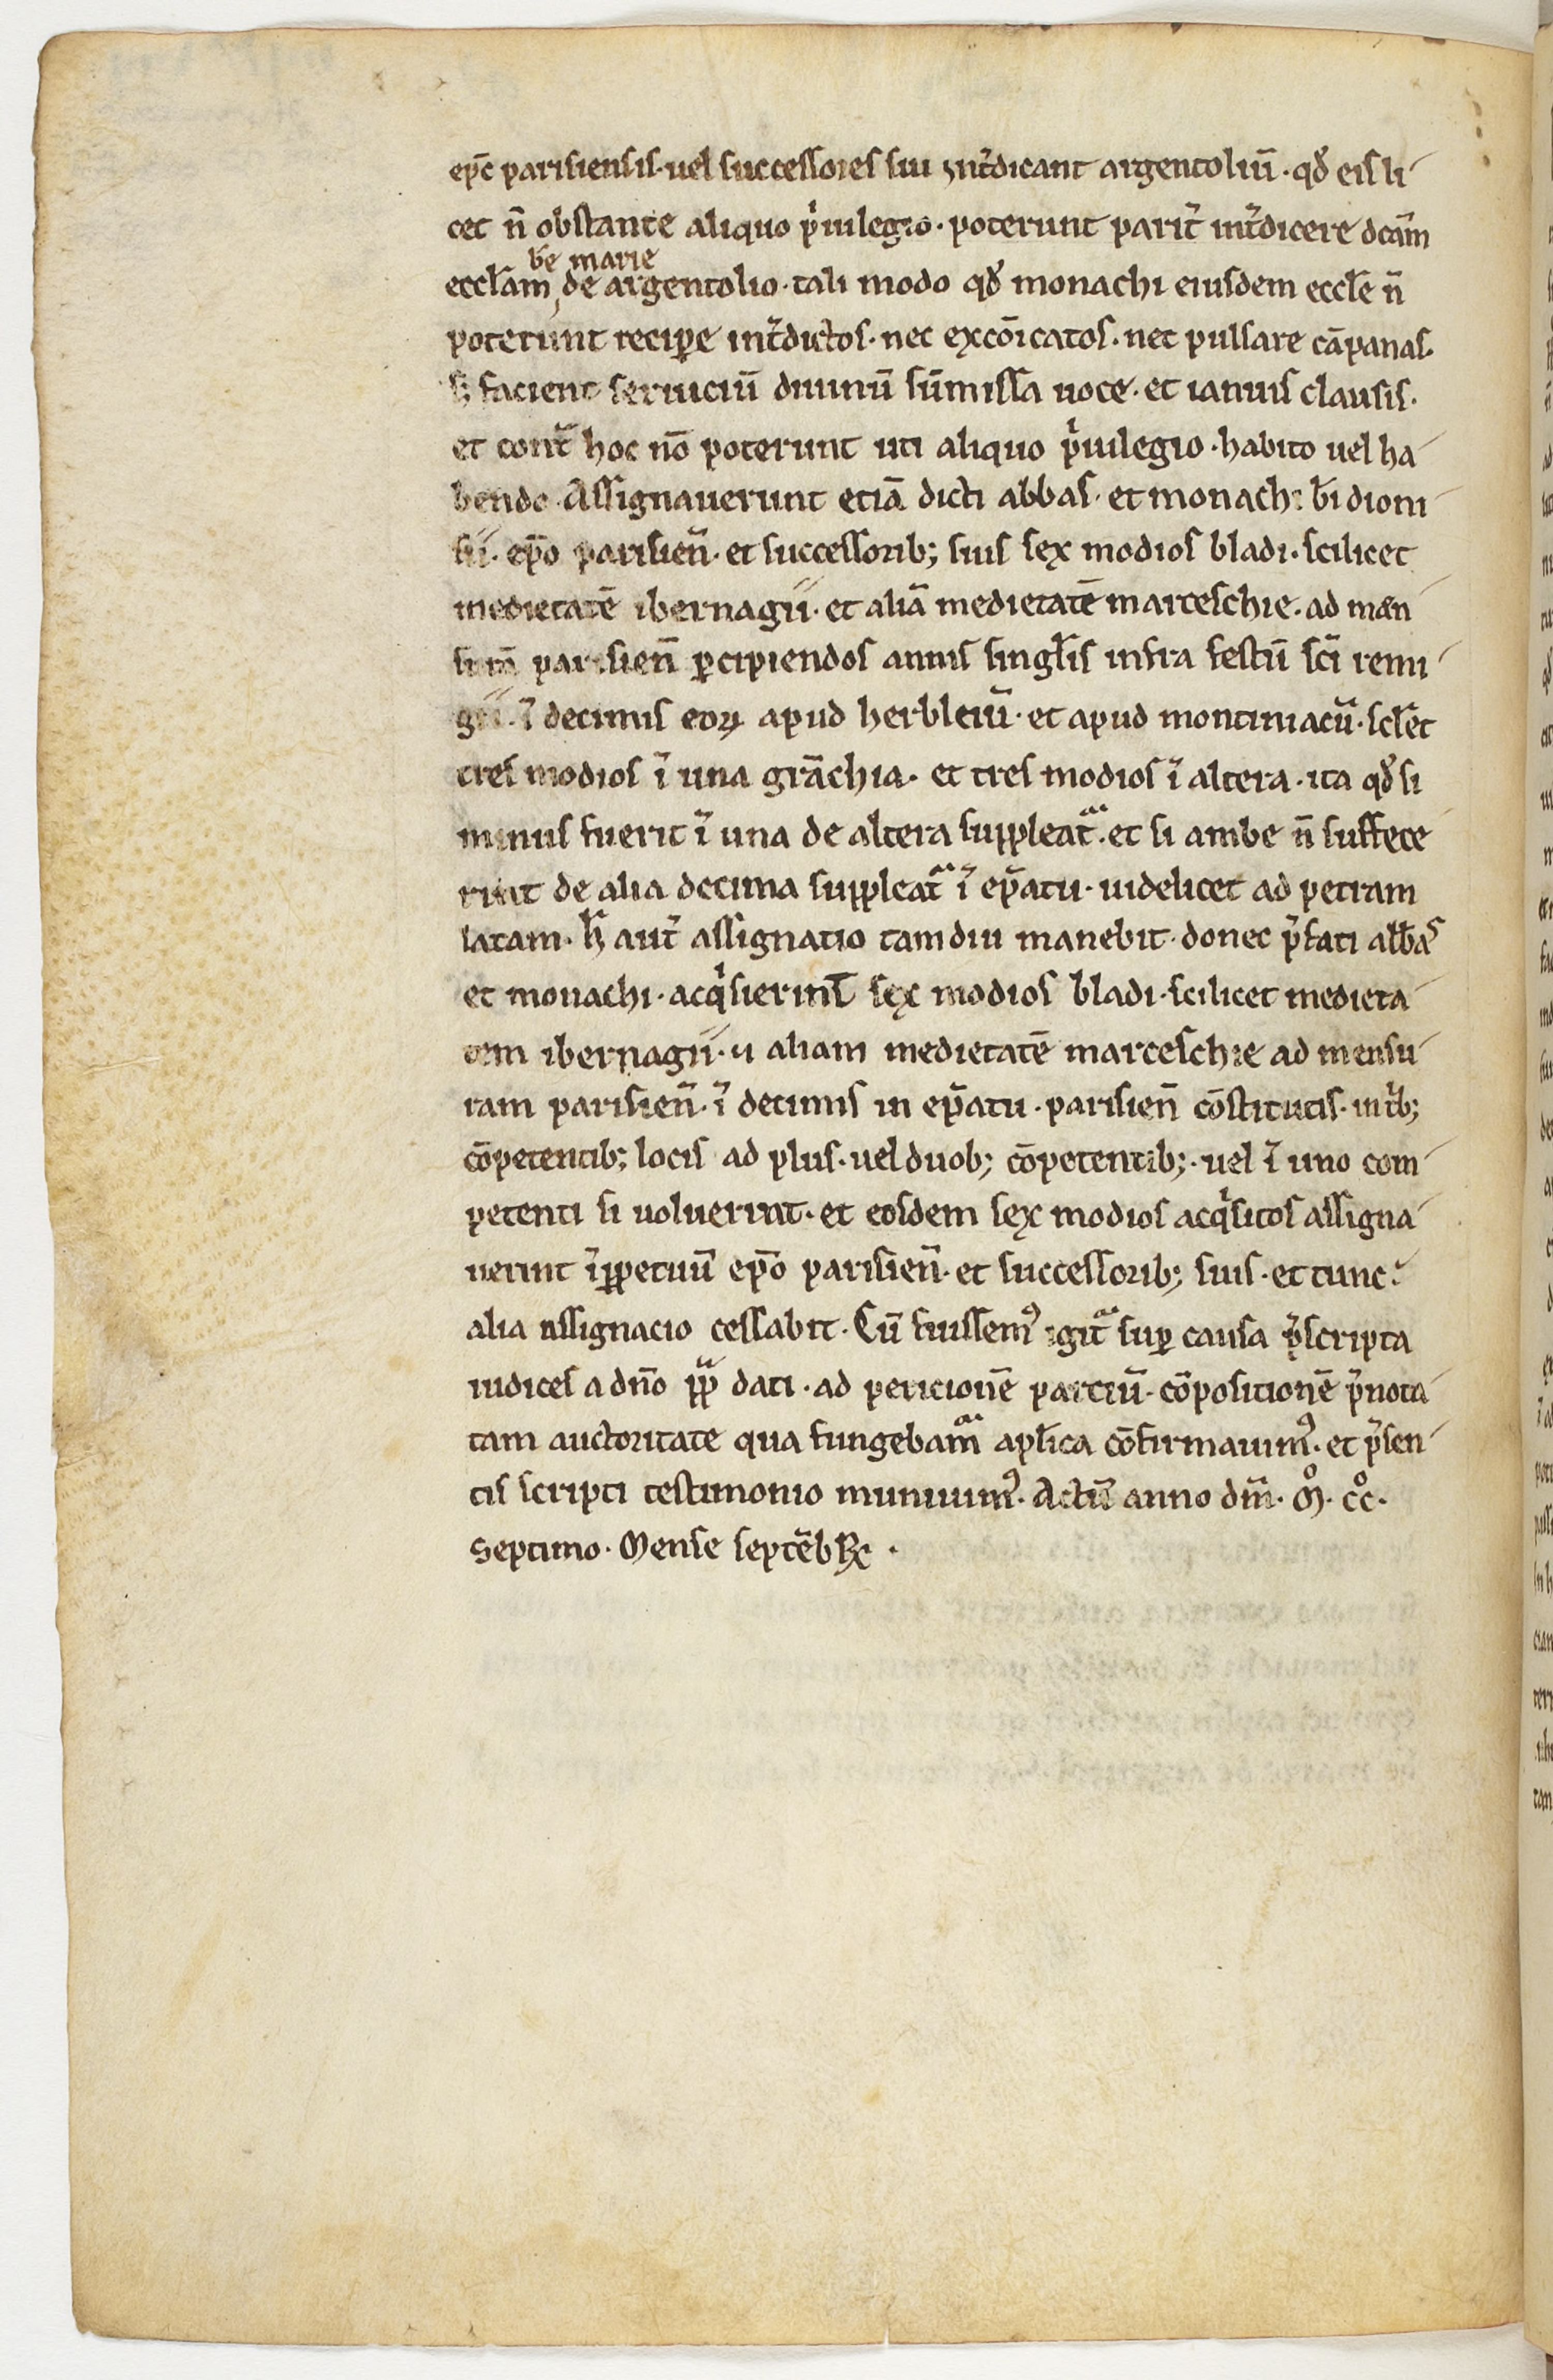 ep̃c parisiensis· uel successores sui int̃dicant argentoliũ· qd̕ eis li-
cet ñ obstante aliquo p̾iuilegio· poterunt parit̃ int̃dicere dcãm
ecc̃lam be᷑ marie de argentolio· tali modo qd̕ monachi eiusdem ecclẽ ñ
poterunt recipe int̃dictos· nec excõicatos· nec pulsare cãpanas·
s; facient seruiciũ diuinũ sũmissa uoce· et ianuis clausis·
et cont̃ hoc nõ poterunt uti aliquo p̾iuilegio· habito uel ha-
bendo· Assignauerunt etiã dicti abbas· et monachi bĩ dioni-
sii· ep̃o parisieñ· et successorib; suis sex modios bladi· scilicet
medietatẽ ibernagii· et aliã medietatẽ marceschie· ad men
surã parisieñ p̱cipiendos annis singl̃is infra festũ sc̃i remi-
gii· ĩ decimis eoꝝ apud herbleiũ· et apud montiniacũ· scl̃et
tres modios ĩ una grãchia· et tres modios ĩ altera· ita qd̕ si
minus fuerit ĩ una de altera suppleat᷑· et si ambe ñ suffece
rint de alia decima suppleat᷑ ĩ ep̃atu· uidelicet ad petram
latam· h̃ aut̃ assignatio tamdiu manebit· donec p̃fati abb̃as
et monachi· acq̾sierint sex modios bladi· scilicet medieta-
tem ibernagii· ⁊ aliam medietatẽ marceschie ad mensu-
ram parisieñ· ĩ decimis in ep̃atu· parisieñ cõstitutis· int̾b;
cõpetentib; locis ad plus· uel duob; cõpetentib;· uel ĩ uno com-
petenti si uoluerint· et eosdem sex modios acq̾sitos assigna-
uerint ĩp̱petuũ ep̃o parisieñ· et successorib; suis· et tunc
alia assignacio cessabit· Cũ fuissemꝰ igit᷑ sup̱ causa p̃scripta
iudices a dño pp̃ dati· ad peticionẽ parciũ· cõpositionẽ p̃nota-
tam auctoritate qua fungebam᷑ apl̃ica cõfirmauimꝰ· et p̃sen-
tis scripti testimonio muniuimꝰ· Actũ anno dñi· m̊· cc̊·
septimo· Mense septẽbRe ·